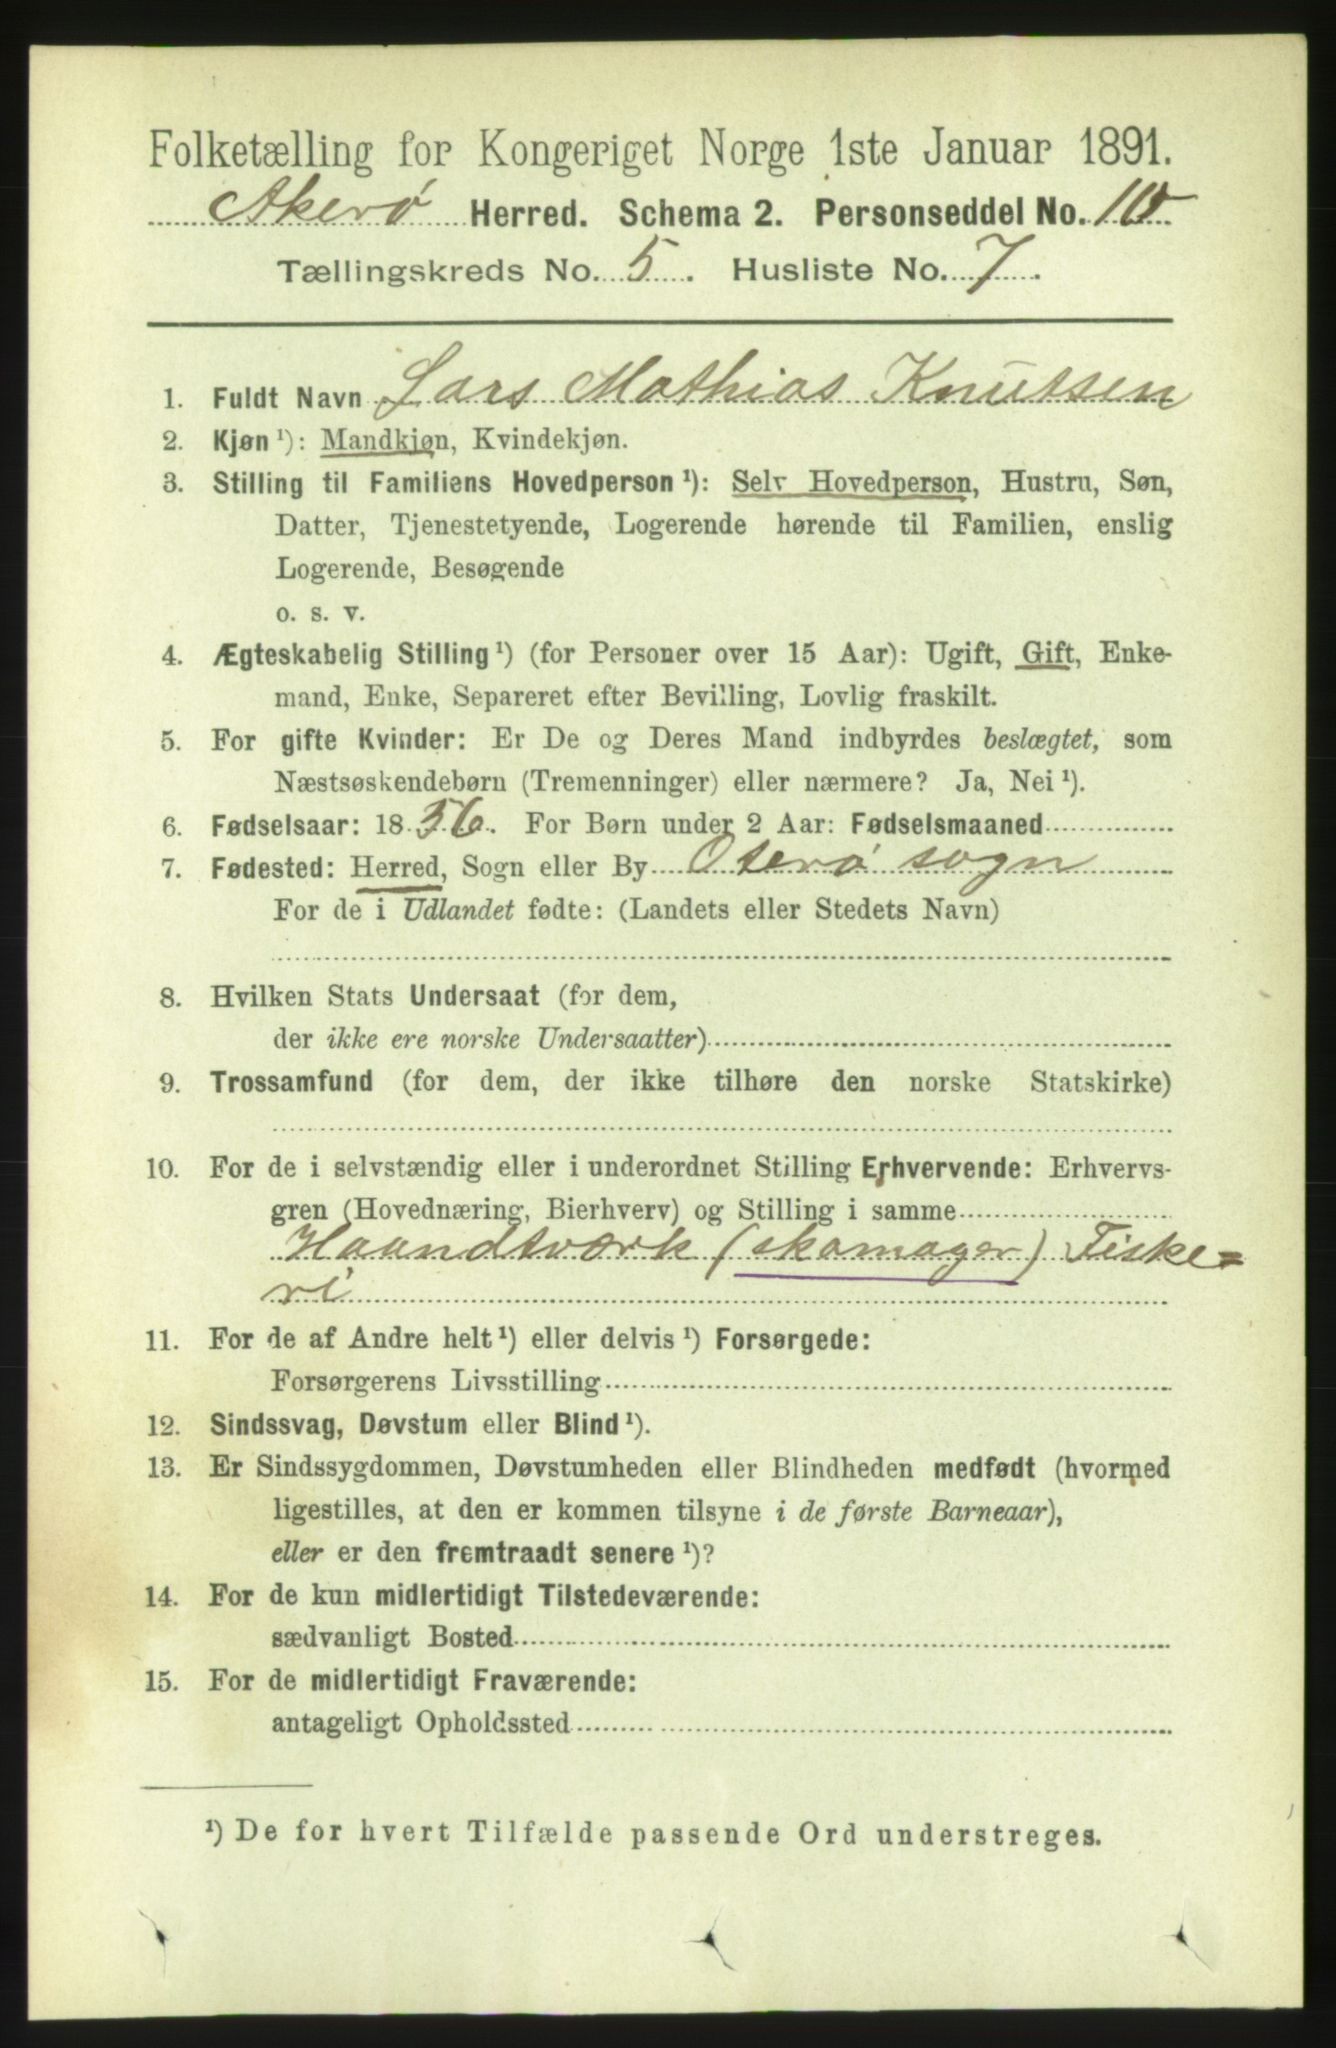 Folketælling for Kongeriget Norge 1ste Januar 1891.
Akerø Herred. Schema 2. Personseddel No. 10
Tællingskreds No. 5. Husliste No. 7.
1. Fuldt Navn Lars Mathias Knutsen
2. Kjøn ¹): Mandkjøn, Kvindekjøn.
3. Stilling til Familiens Hovedperson ¹): Selv Hovedperson, Hustru, Søn,
Datter, Tjenestetyende, Logerende hørende til Familien, enslig
Logerende, Besøgende
o. s. v.
4. Ægteskabelig Stilling ¹) (for Personer over 15 Aar): Ugift, Gift, Enke-
mand, Enke, Separeret efter Bevilling, Lovlig fraskilt.
5. For gifte Kvinder: Er De og Deres Mand indbyrdes beslægtet, som
Næstsøskendebørn (Tremenninger) eller nærmere? Ja, Nei ¹).
6. Fødselsaar: 1856. For Børn under 2 Aar: Fødselsmaaned
7. Fødested: Herred, Sogn eller By Oterø sogn
For de i Udlandet fødte: (Landets eller Stedets Navn)
8. Hvilken Stats Undersaat (for dem,
der ikke ere norske Undersaatter)
9. Trossamfund (for dem, der ikke tilhøre den norske Statskirke)
10. For de i selvstændig eller i underordnet Stilling Erhvervende: Erhvervs-
gren (Hovednæring, Bierhverv) og Stilling i samme
Haandtværk (skomager) Fiske=
ri
11. For de af Andre helt ¹) eller delvis ¹) Forsørgede:
Forsørgerens Livsstilling
12. Sindssvag, Døvstum eller Blind ¹).
13. Er Sindssygdommen, Døvstumheden eller Blindheden medfødt (hvormed
ligestilles, at den er kommen tilsyne i de første Barneaar),
eller er den fremtraadt senere ¹)?
14. For de kun midlertidigt Tilstedeværende:
sædvanligt Bosted
15. For de midlertidigt Fraværende:
antageligt Opholdssted
¹) De for hvert Tilfælde passende Ord understreges.